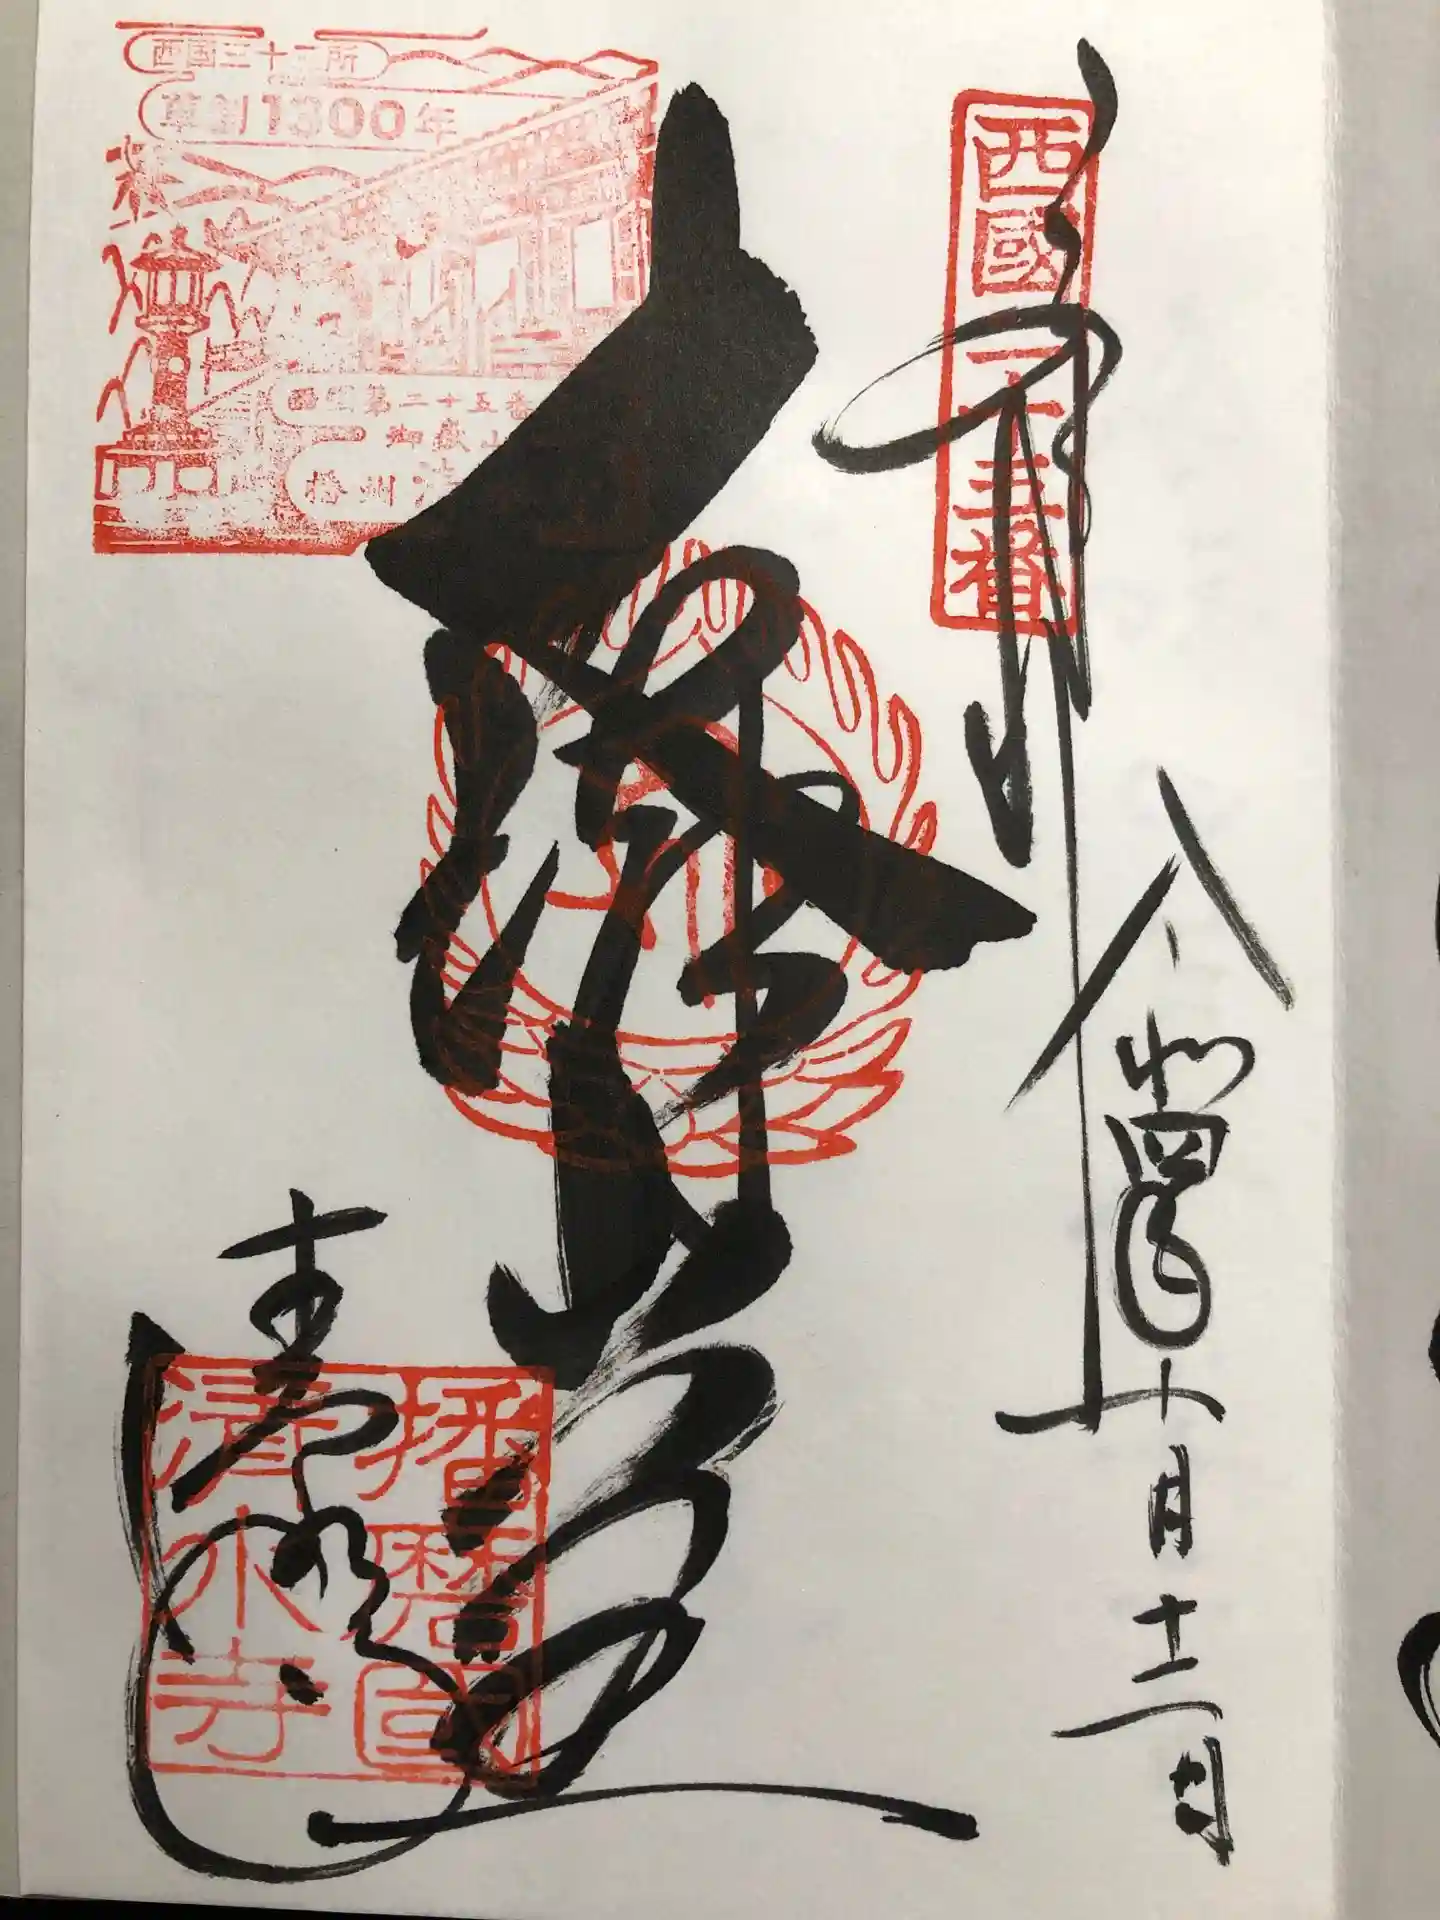 西國二十五番
奉拝
令和四年十月十二日
大講堂
西国三十三所
草創1300年
西国第二十五番
御嶽山
播州清
清水寺
播磨國
清水寺